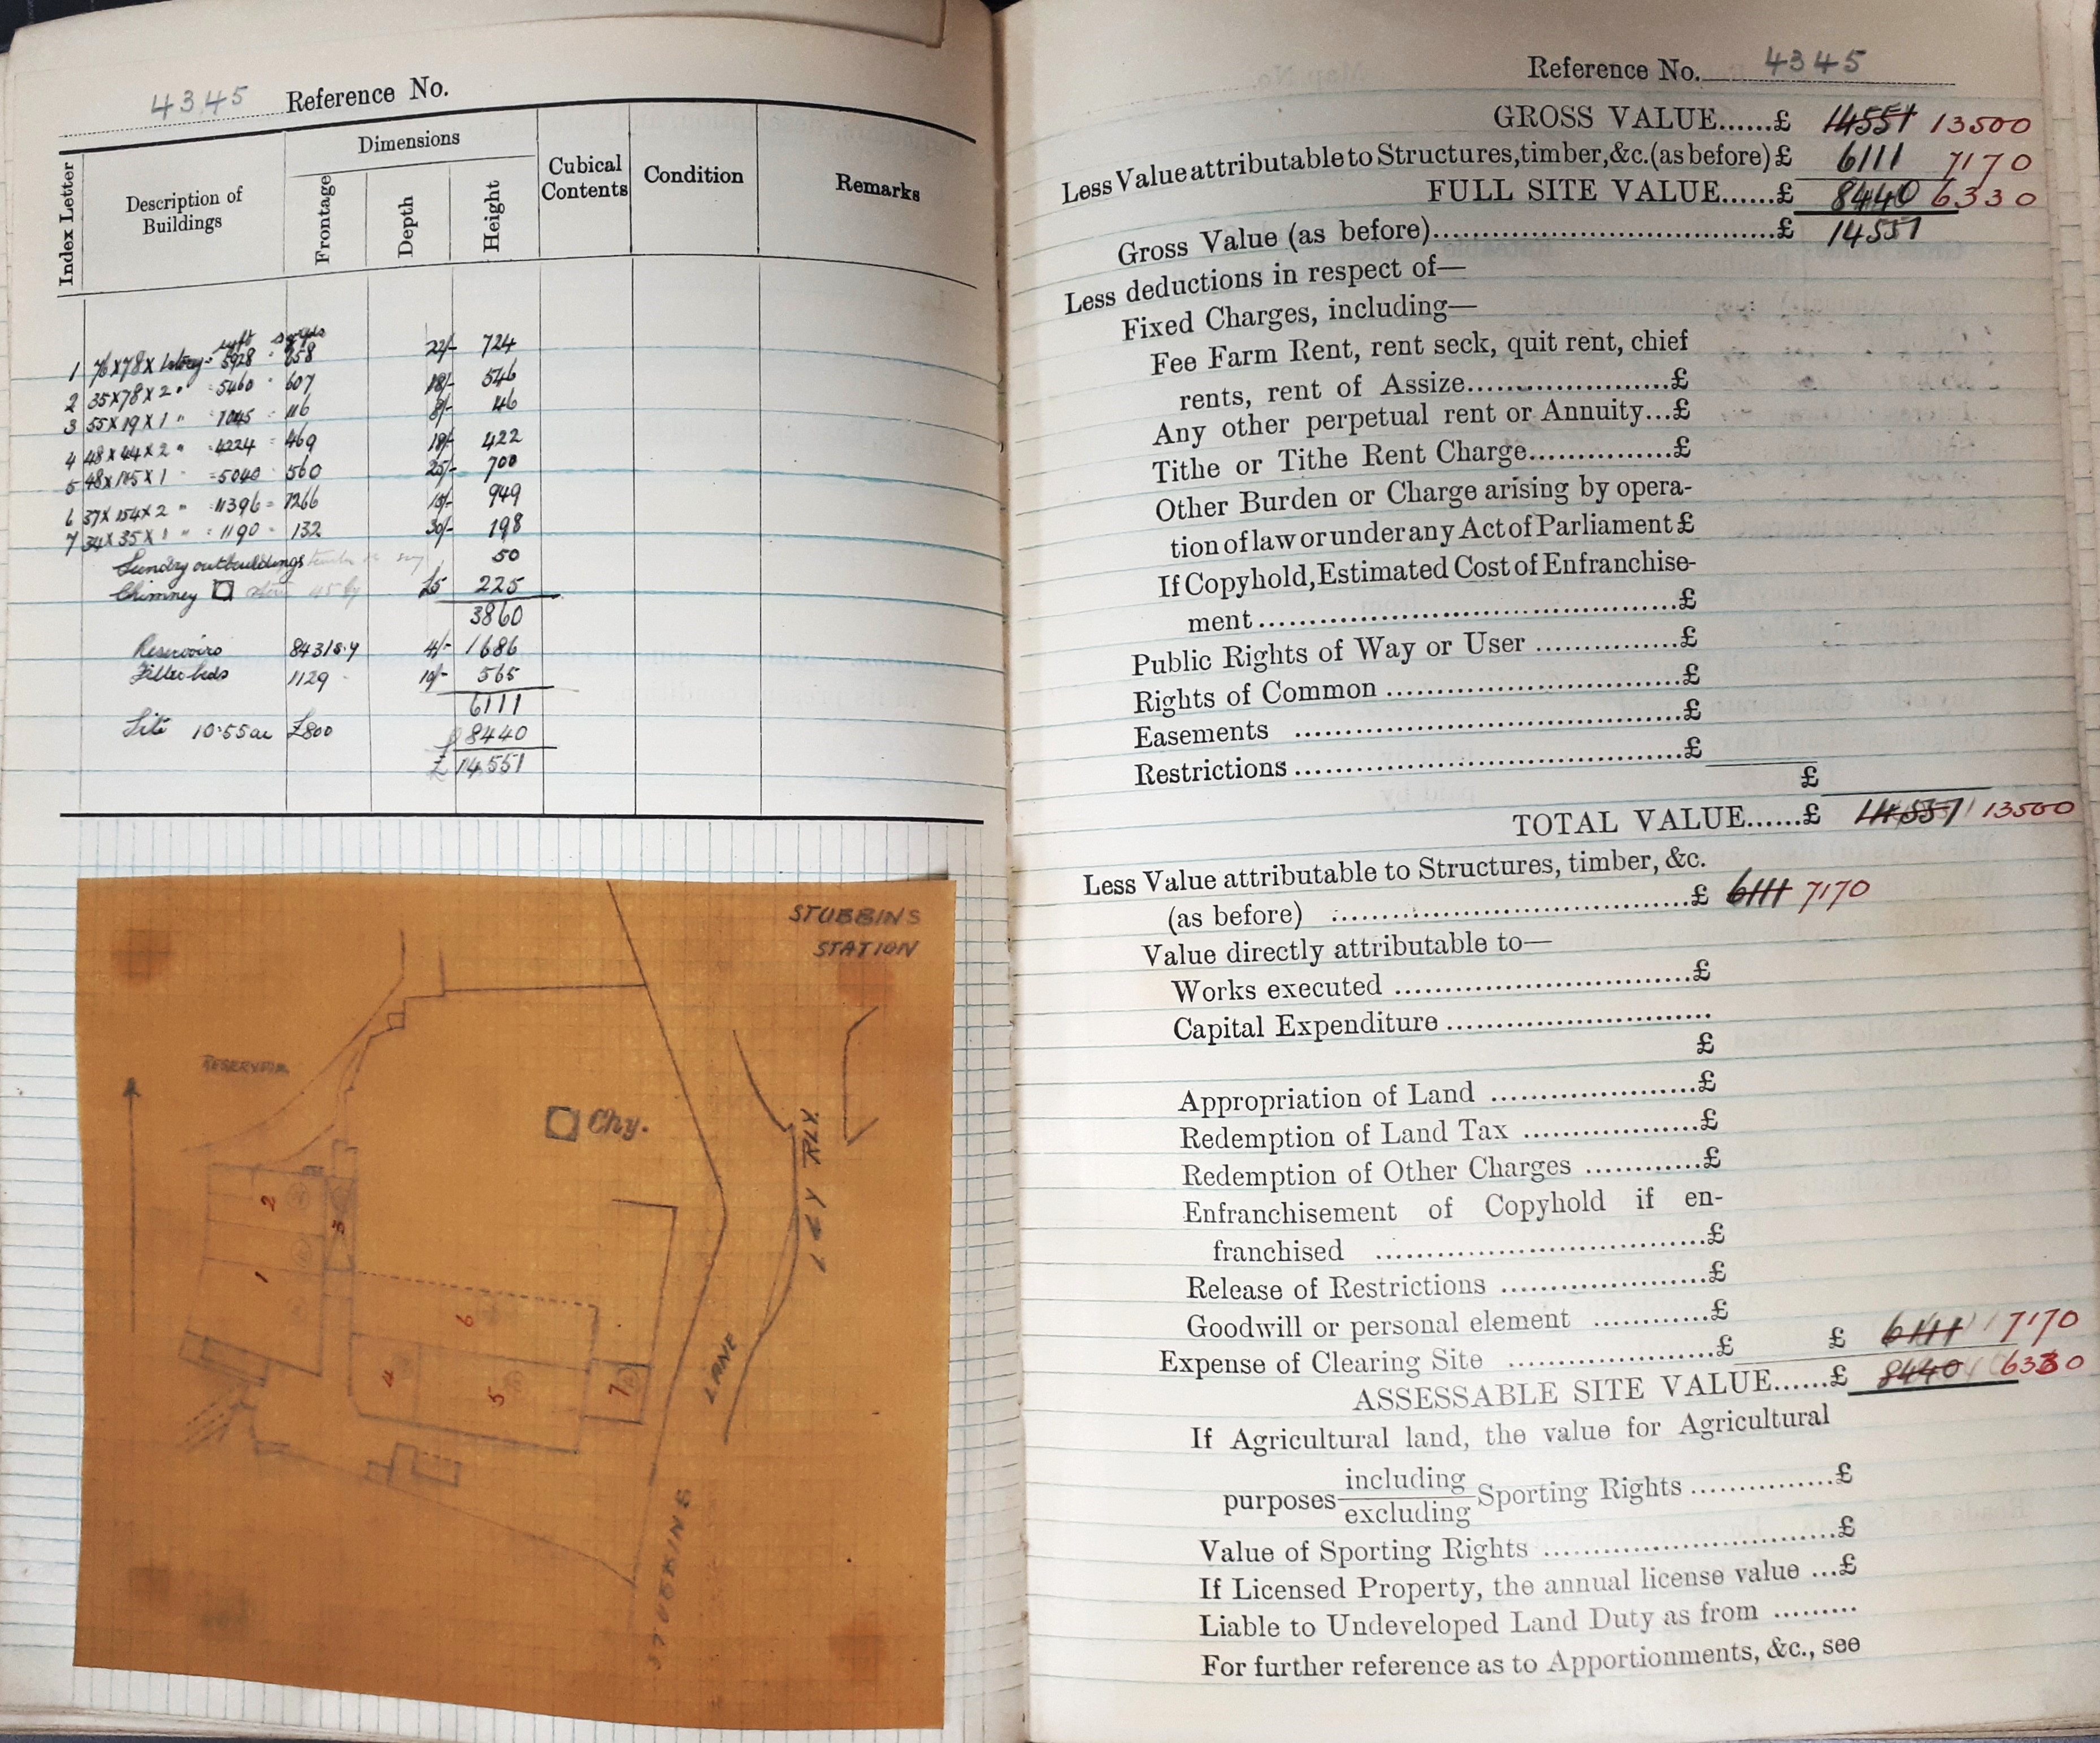 4345 Reference No.
Index Letter
Description of Buildings
Dimensions
Frontage
Depth
Height
Cubical Contents
Condition
Remarks
sqft sqyds
1 76x78x1 storey = 5928 = 658 22/- 724
2 35x78x2 " = 5460 = 607 18/- 546
3 55x19x1 " = 1045 = 116 8/- 46
4 48x44x2 " = 4224 = 469 18/- 422
5 48x105x1 " = 5040 = 560 25/- 700
6 37x154x2 " = 11396 = 1266 15/- 949
7 34x35x1 " = 1190 = 132 30/- 198
Sundry outbuildings 50
Chimney 45 £5 225
3860
Reservoirs 8431 s.y 4/- 1686
Filter beds 1129 10/- 565
6111
Site 10.55 ac £800 8440
£ 14,551
STUBBINS
STATION
RESERVOIR
Chy.
2
3
1
6
4
5
7
LANE
STUBBINS
Reference No. 4345
GROSS VALUE......£ 14551 13500
Less Value attributable to Structures, timber, &c. (as before) £ 6111 7170
FULL SITE VALUE......£ 8440 6330
Gross Value (as before)..........£ 14551
Less deductions in respect of—
Fixed Charges, including—
Fee Farm Rent, rent seck, quit rent, chief
rents, rent of Assize..........£
Any other perpetual rent or Annuity...£
Tithe or Tithe Rent Charge..........£
Other Burden or Charge arising by opera-
tion of law or under any Act of Parliament £
If Copyhold, Estimated Cost of Enfranchise-
ment..........£
Public Rights of Way or User ..........£
Rights of Common ..........£
Easements ..........£
Restrictions ..........£
£
TOTAL VALUE......£ 14551 13500
Less Value attributable to Structures, timber, &c.
(as before) ..........£ 6111 7170
Value directly attributable to—
Works executed ..........£
Capital Expenditure ..........
£
Appropriation of Land ..........£
Redemption of Land Tax ..........£
Redemption of Other Charges ..........£
Enfranchisement of Copyhold if en-
franchised ..........£
Release of Restrictions ..........£
Goodwill or personal element ..........£
Expense of Clearing Site ..........£ £ 6111 7170
ASSESSABLE SITE VALUE......£ 8440 6330
If Agricultural land, the value for Agricultural
purposes including
excluding Sporting Rights ..........£
Value of Sporting Rights ..........£
If Licensed Property, the annual license value ...£
Liable to Undeveloped Land Duty as from .........
For further reference as to Apportionments, &c., see